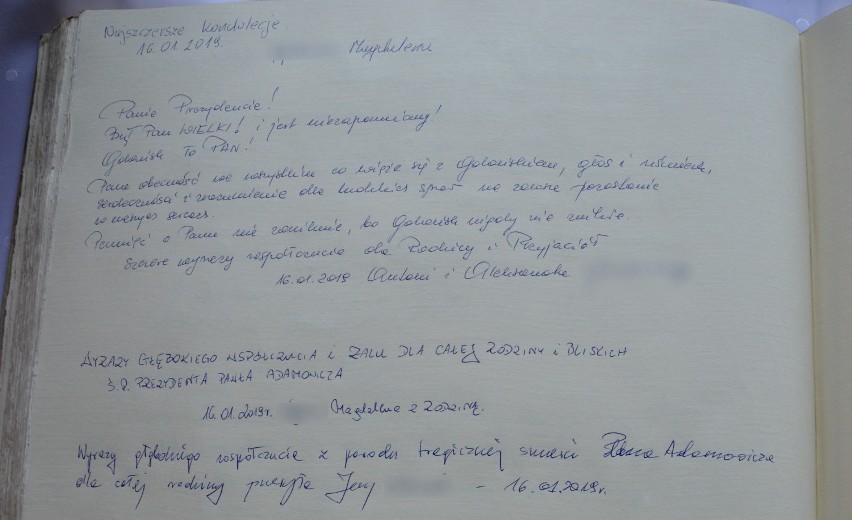 Najszczersze kondolencje
16.01.2019. Magdalena
Panie Prezydencie!
Był Pan WIELKI! i jest niezapomniany!
Gdańsk To PAN!
Pana obecność we wszystkim co wiąże się z Gdańskiem, głos i uśmiech,
serdeczność i zrozumienie dla ludzkich spraw na zawsze pozostanie
w naszych sercach.
Pamięć o Panu nie zaniknie, bo Gdańsk nigdy nie zniknie.
Szczere wyrazy współczucia dla Rodziny i Przyjaciół
16.01.2019 Antoni i Aleksandra
WYRAZY GŁĘBOKIEGO WSPÓŁCZUCIA i ŻALU DLA CAŁEJ RODZINY i BLISKICH
Ś.P. PREZYDENTA PAWŁA ADAMOWICZA
16.01.2019r. Magdalena z Rodziną.
Wyrazy głębokiego współczucia z powodu tragicznej śmierci Pana Adamowicza
dla całej rodziny Jerzy - 16.01.2019r.